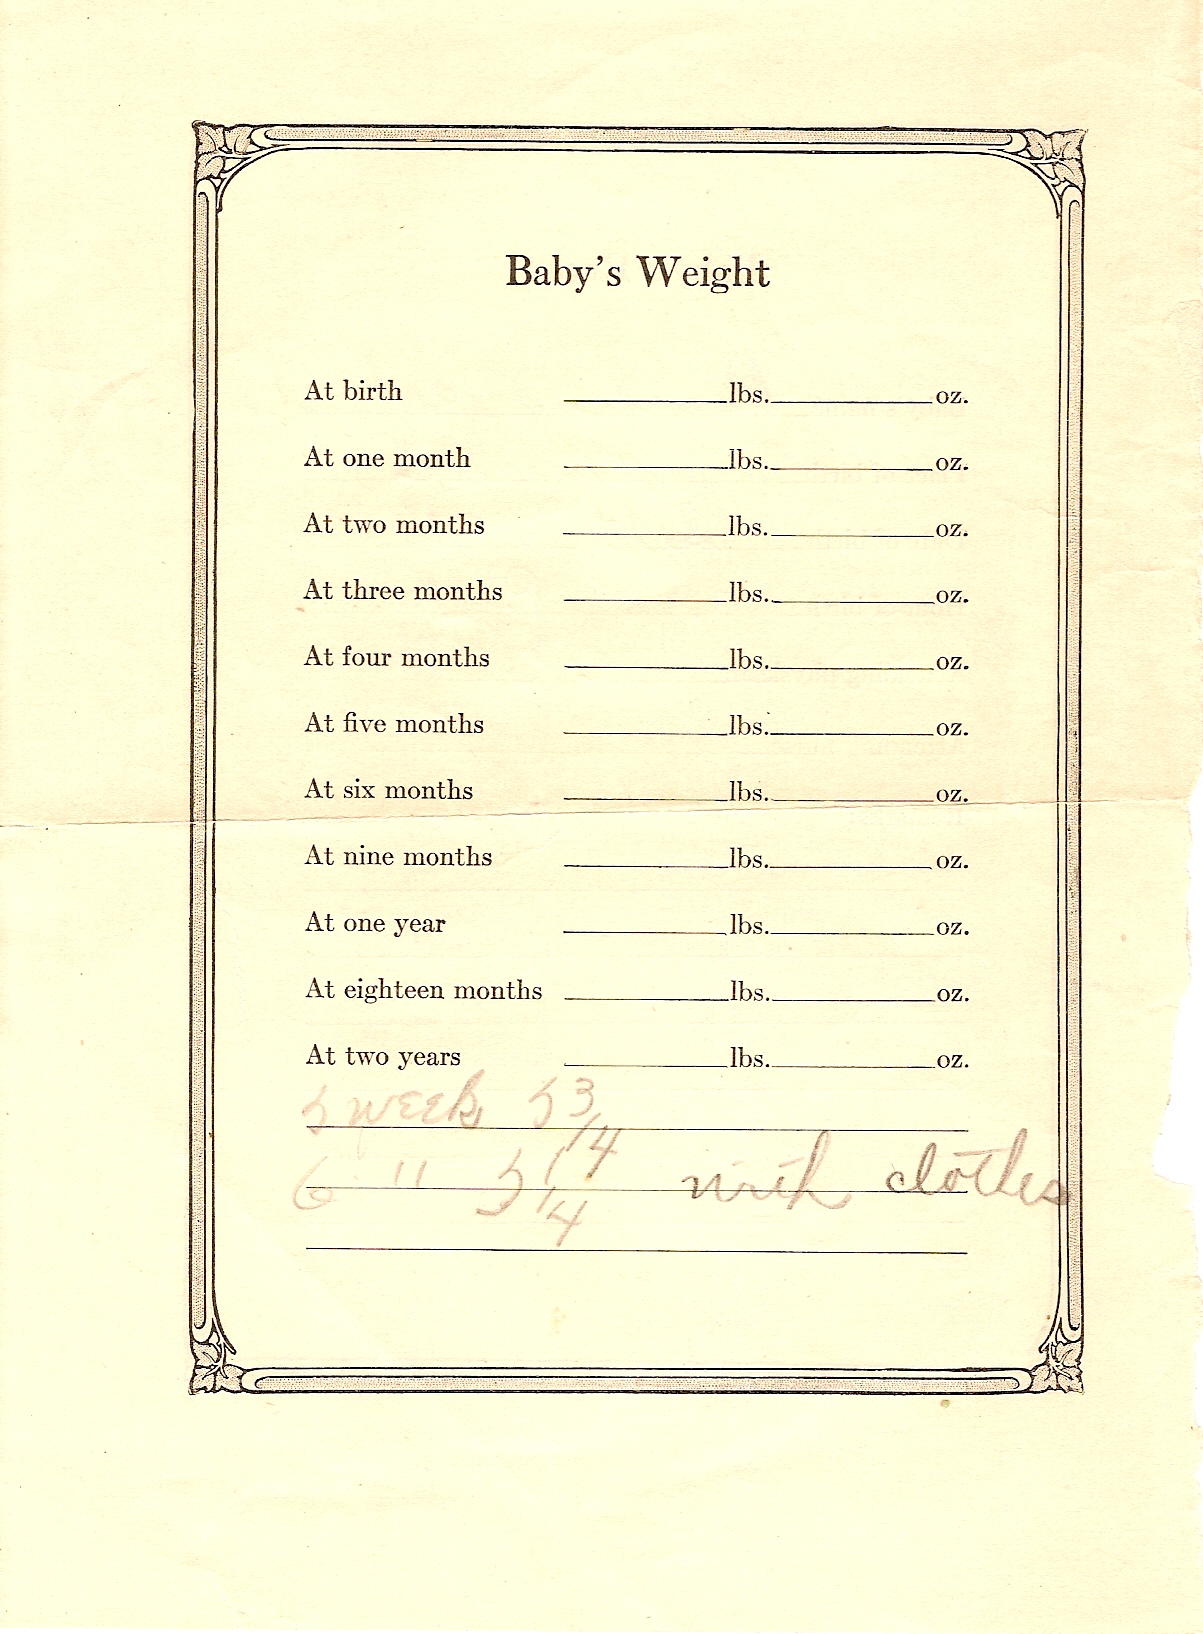 Baby's Weight
At birth lbs. oz.
At one month lbs. oz.
At two months lbs. oz.
At three months lbs. oz.
At four months lbs. oz.
At five months lbs. oz.
At six months lbs. oz.
At nine months lbs. oz.
At one year lbs. oz.
At eighteen months lbs. oz.
At two years lbs. oz.
5 week 5 3/4
6 " 5 1/4 with clothes